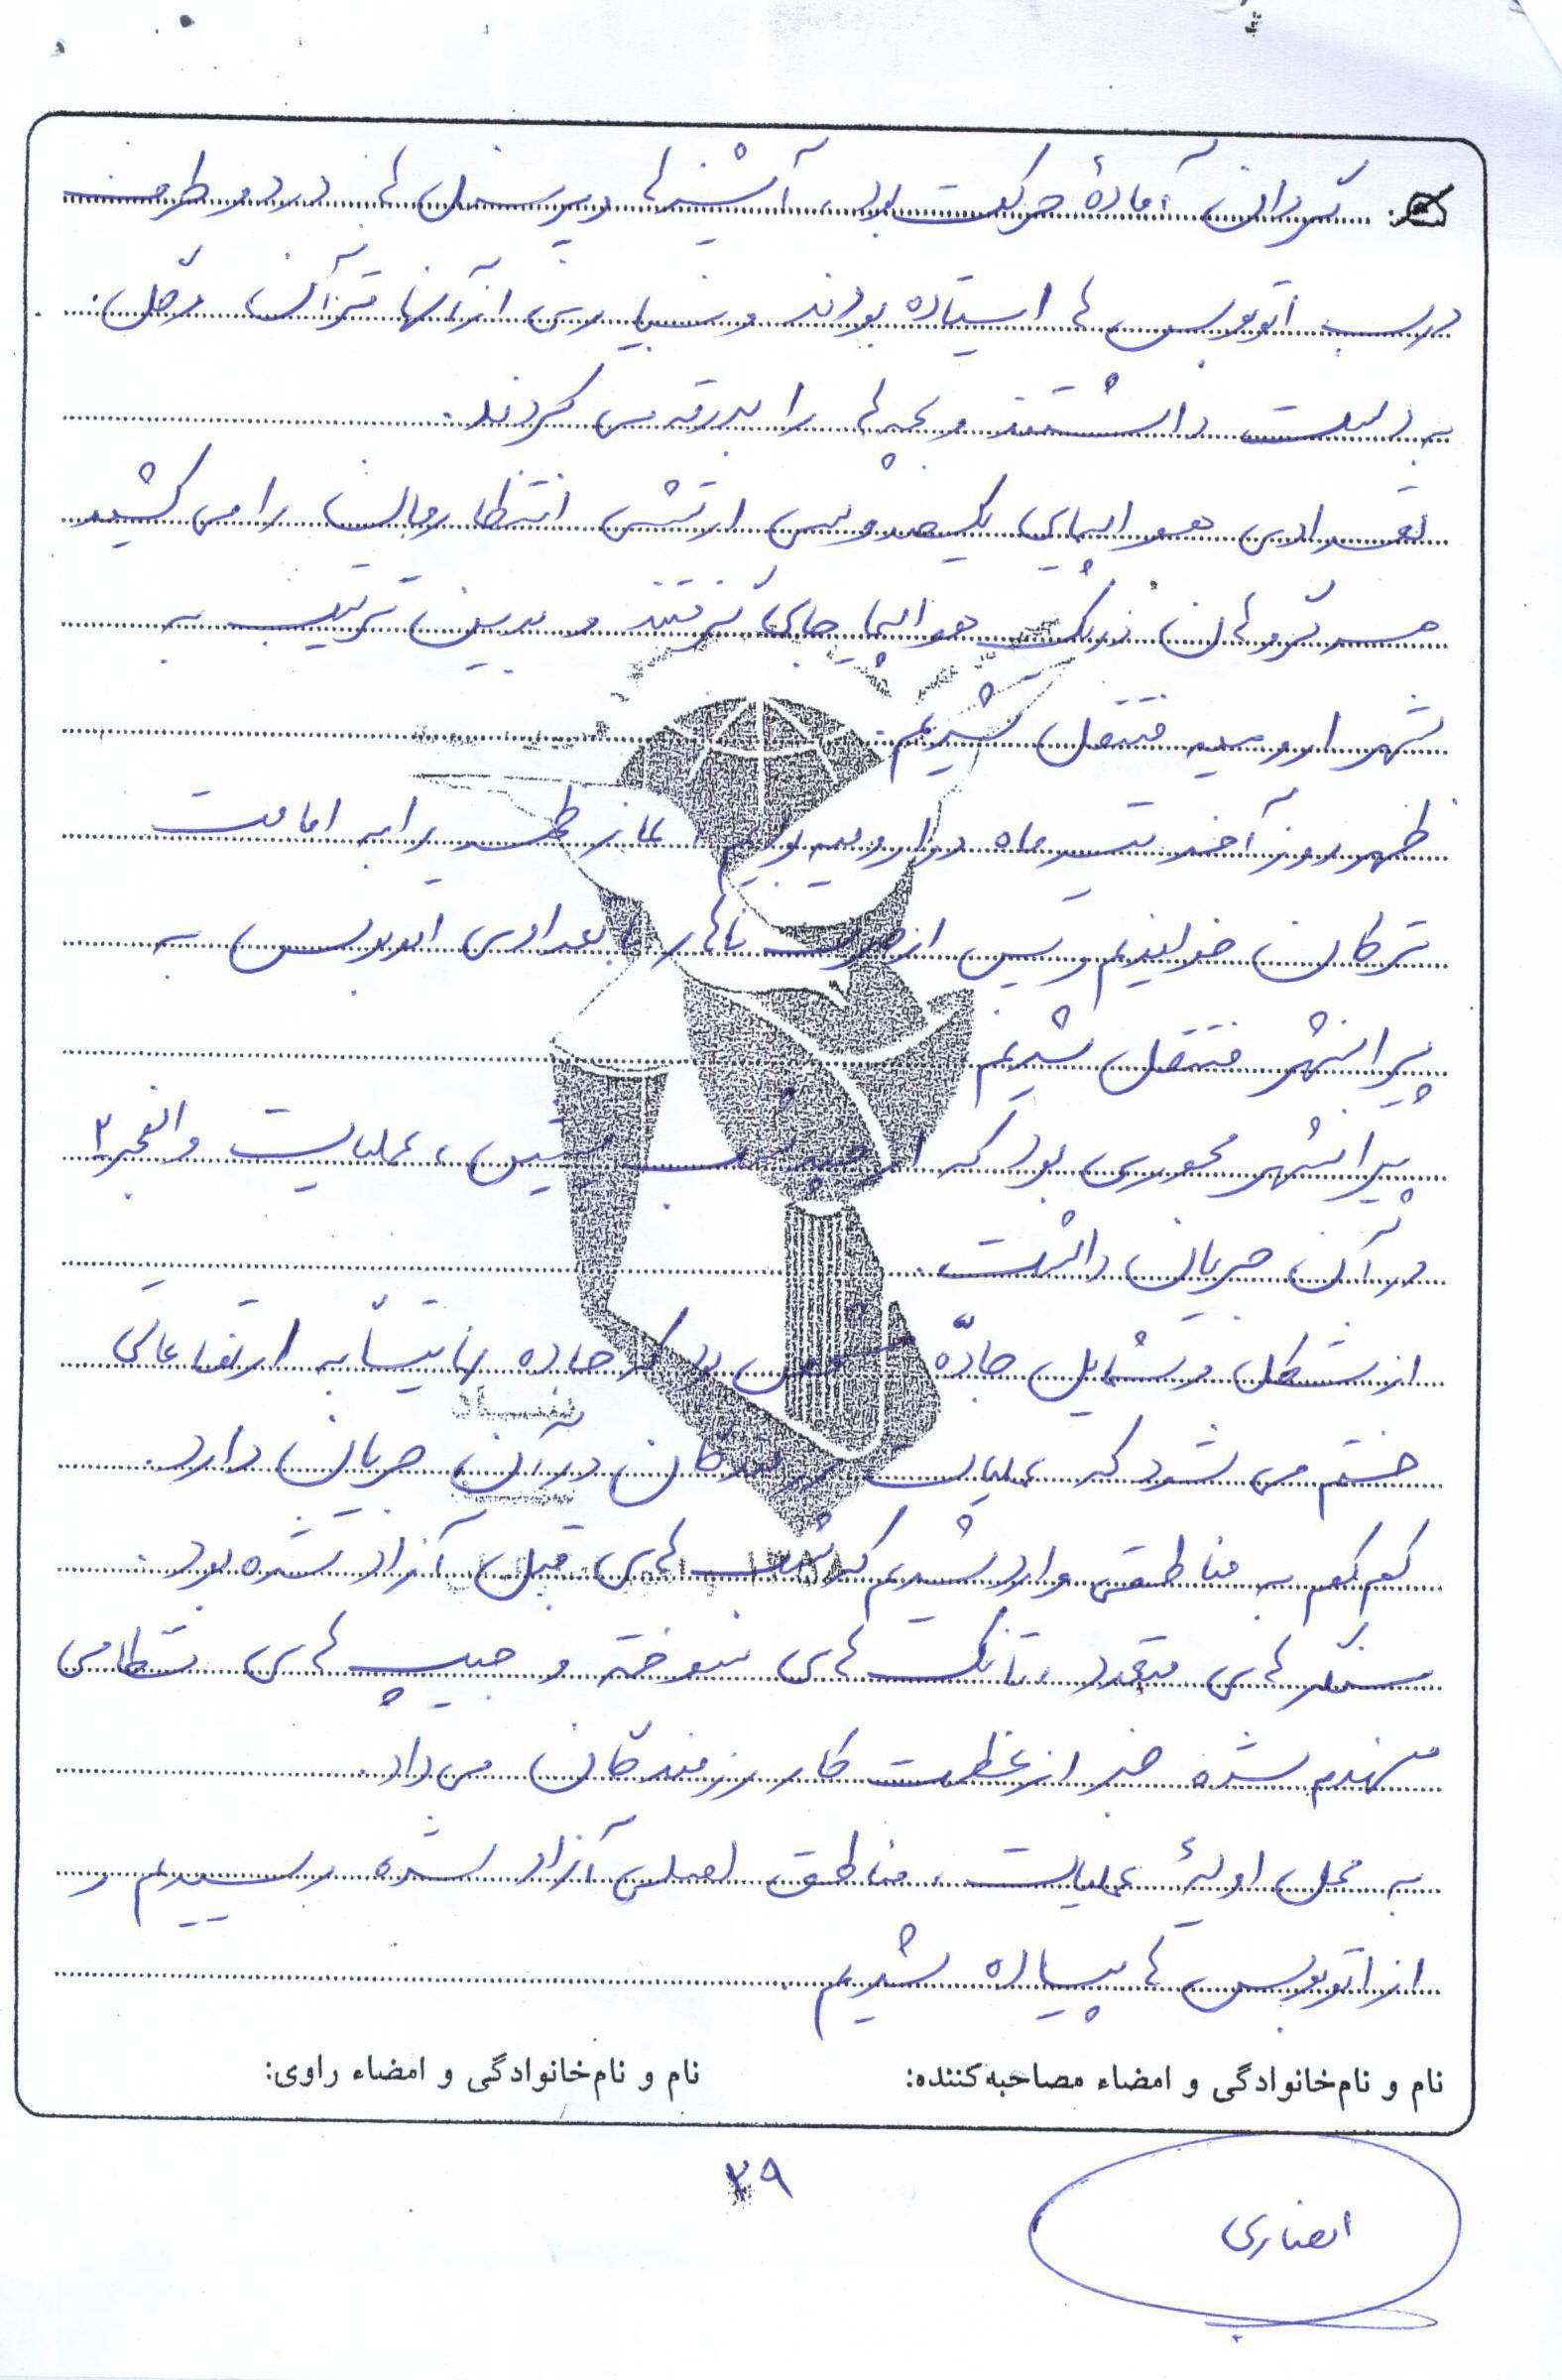 گردان آمادهٔ حرکت بود، آشپزها و پرسنل ها در دو طرف
درب اتوبوس ها ایستاده بودند و بسیاری از آنها قرآن و گل
به دست داشتند و بچه ها را بدرقه می کردند.
تعدادی هواپیمای یکصدوسی ارتش انتظارمان را می کشید
هر گروهان در یک هواپیما جای گرفتند و بدین ترتیب به
شهر ارومیه منتقل شدیم.
ظهر روز آخر تیر ماه در ارومیه بودیم، نماز ظهر را به امامت
ترکان خواندیم و پس از صرف ناهار با تعدادی اتوبوس به
پیرانشهر منتقل شدیم
پیرانشهر محوری بود که از چند شب پیش، عملیات والفجر ۲
در آن جریان داشت.
از شکل و شمایل جادّه بود که جاده نهایتاً به ارتفاعاتی
ختم می شود که عملیات رزمندگان در آن جریان دارد.
کم کم به مناطقی وارد شدیم که شب های قبل آزاد شده بود.
سنگرهای متعدد، تانک های سوخته و جیپ های نظامی
منهدم شده خبر از عظمت کار رزمندگان می داد.
به محل اولیهٔ عملیات، مناطق اصلی آزاد شده رسیدیم و
از اتوبوس ها پیاده شدیم.
نام و نام‌خانوادگی و امضاء مصاحبه‌کننده: نام و نام‌خانوادگی و امضاء راوی:
۲۹
انصاری